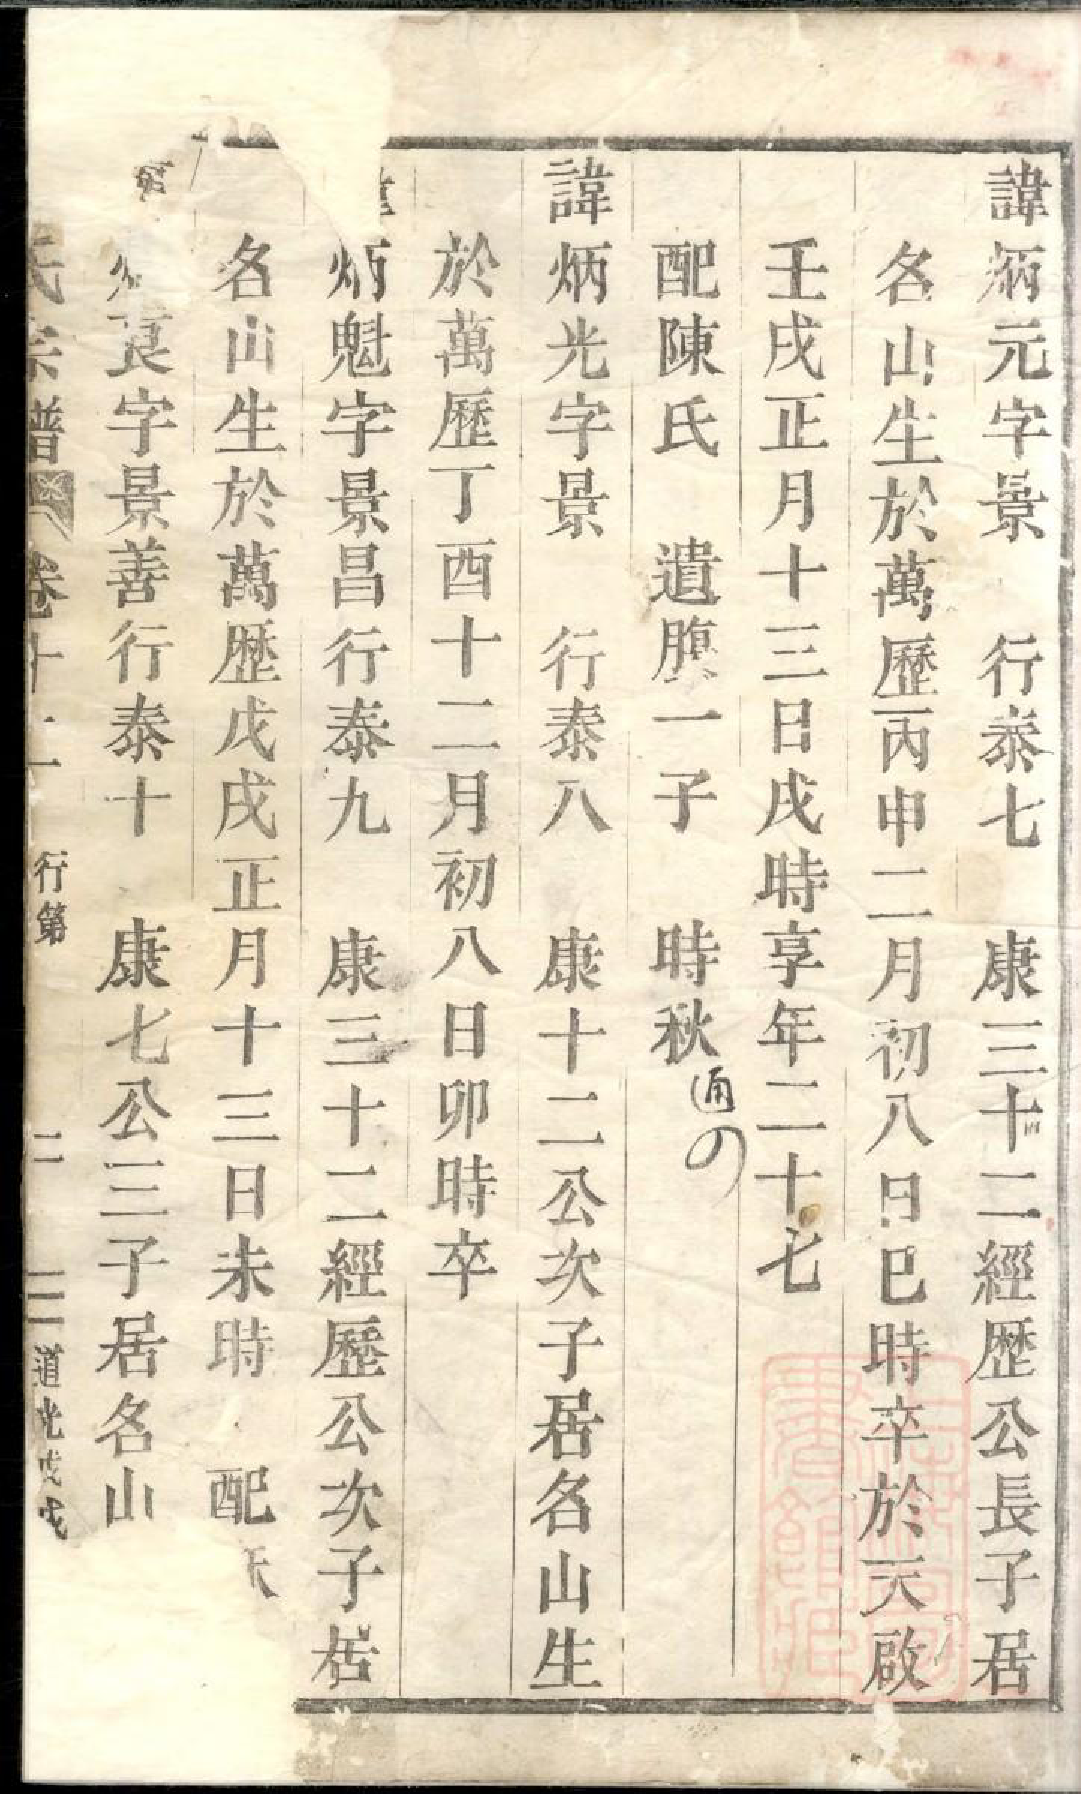 諱炳元字景　行泰七　康三十二經歷公長子居
名山生於萬歷丙申二月初八日巳時卒於天啟
壬戌正月十三日戌時享年二十七
配陳氏　遺腹一子　時秋
諱炳光字景　行泰八　康十二公次子居名山生
於萬歷丁酉十二月初八日卯時卒
炳魁字景昌行泰九　康三十二經歷公次子居
名山生於萬歷戊戌正月十三日未時　配
良字景善行泰十　康七公三子居名山
氏宗譜　卷十二　行第　二　道光戊戌